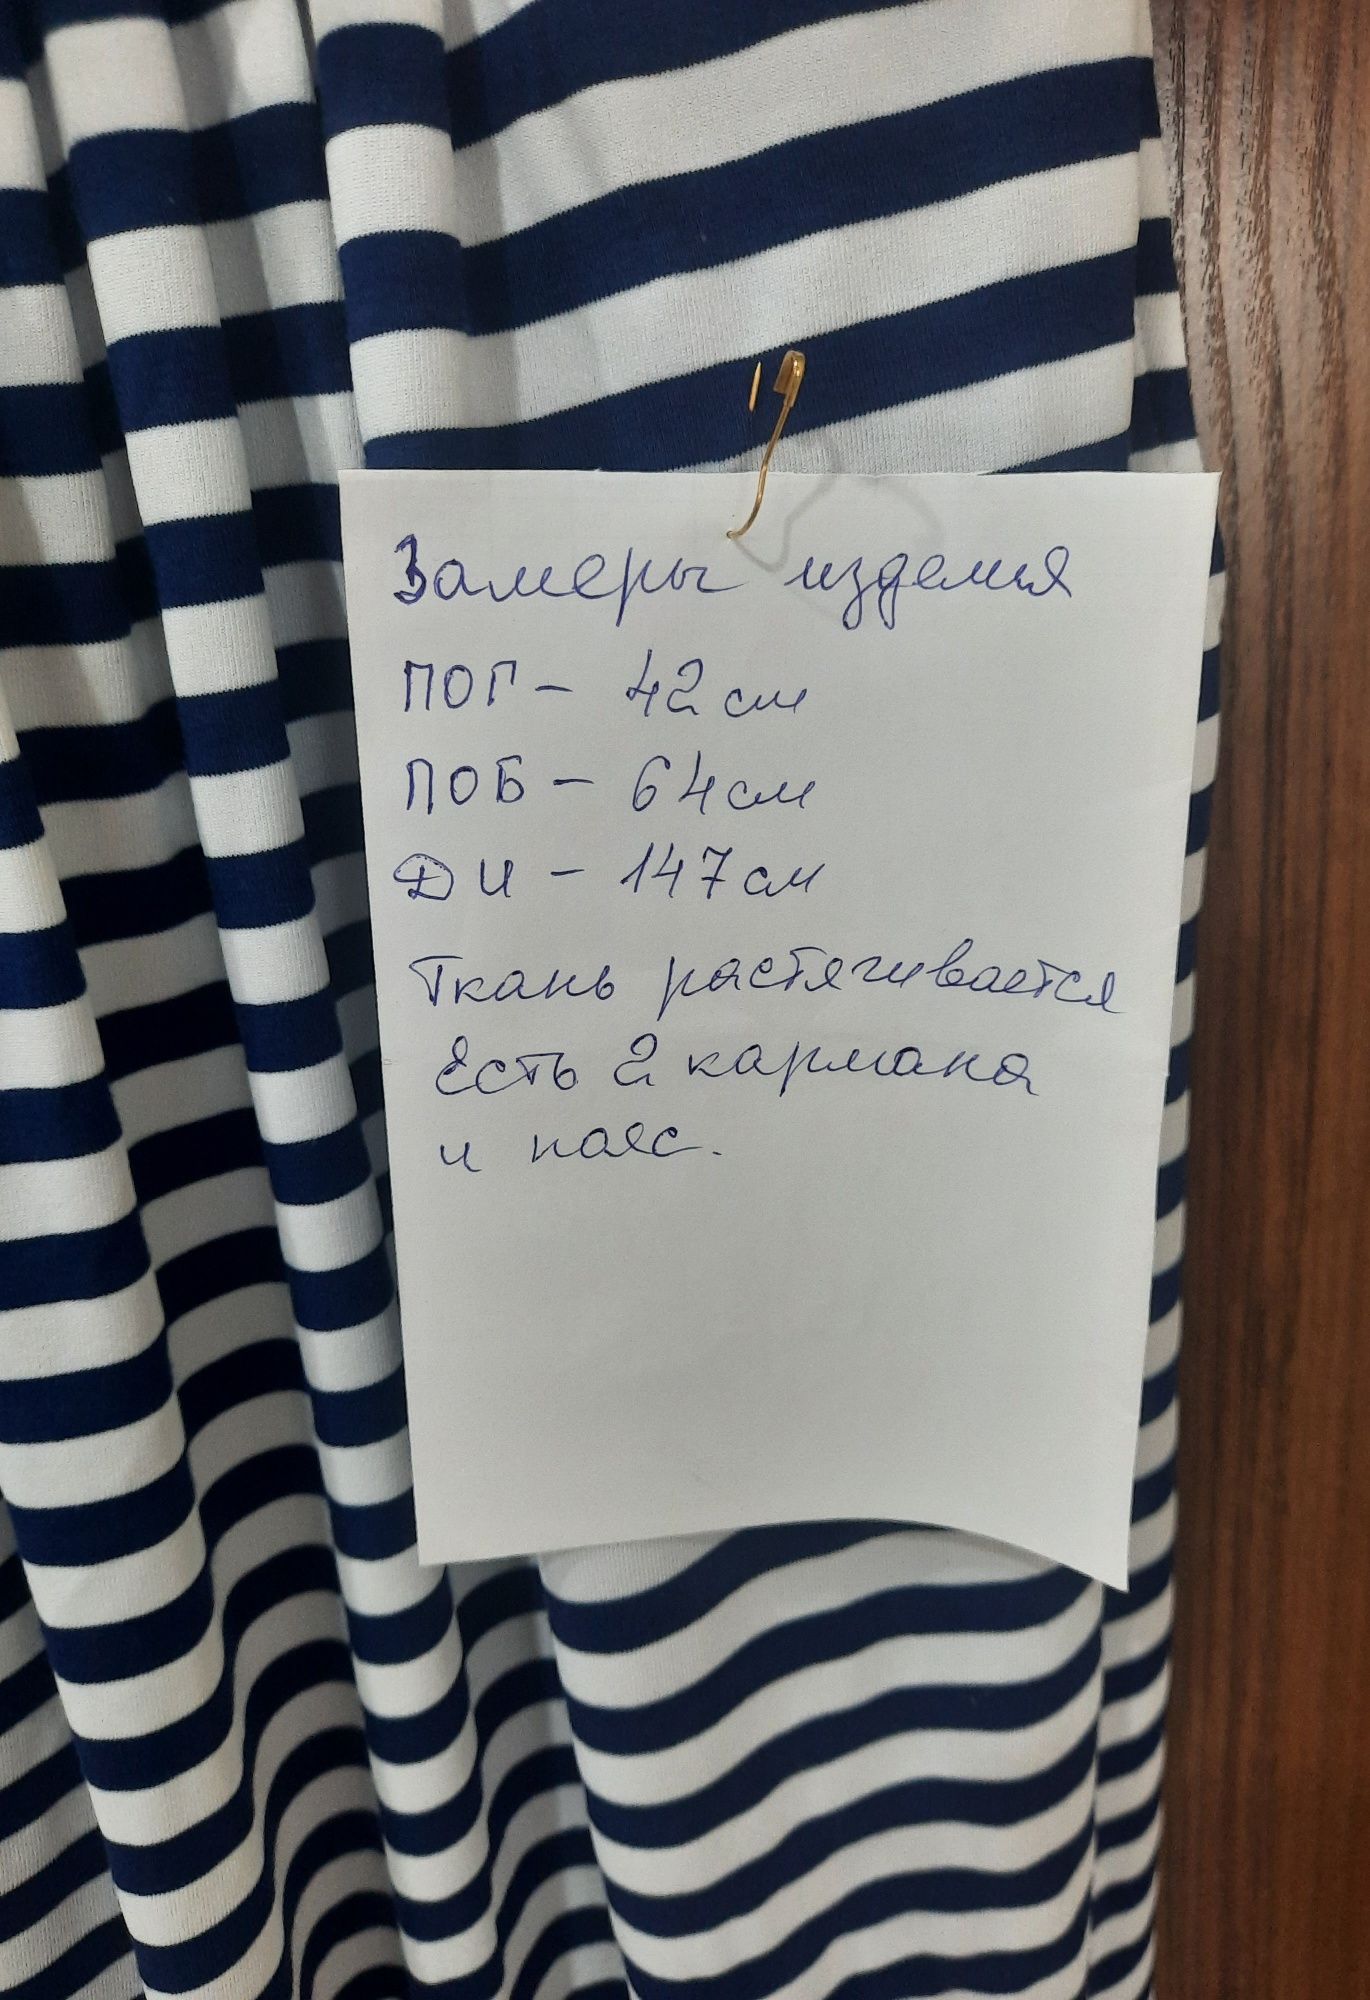 Замеры изделия
ПОГ - 42 см
ПОБ - 64 см
ДИ - 147 см
Ткань растягивается
Есть 2 кармана
и пояс.